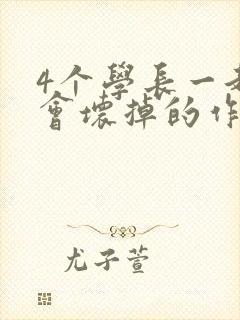 4个學長一
會壞掉的作
尤子萱